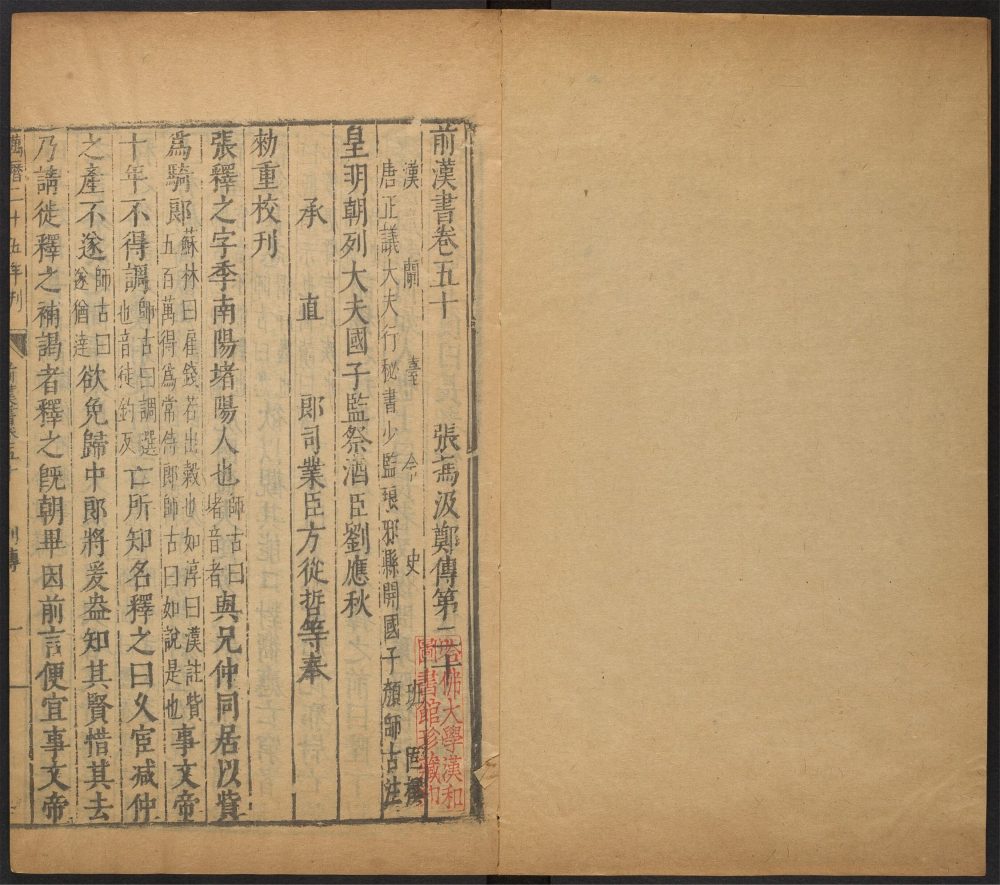 前漢書卷五十　張馮汲鄭傳第二十
漢 蘭 臺 令 史 班 固 撰
唐正議大夫行秘書少監琅邪縣開國子顏師古注
皇明朝列大夫國子監祭酒臣劉應秋
承 直 郎司業臣方從哲等奉
勑重校刊
張釋之字季南陽堵陽人也師古曰堵音者與兄仲同居以貲
爲騎郎蘇林曰雇錢若出穀也如淳曰漢註貲五百萬得爲常侍郎師古曰如說是也事文帝
十年不得調師古曰調選也音徒釣反亡所知名釋之曰久宦減仲
之產不遂師古曰遂猶達欲免歸中郎將爰盎知其賢惜其去
乃請徙釋之補謁者釋之旣朝畢因前言便宜事文帝
萬曆二十五年刊
前漢書卷五十
列傳
一
哈佛大學漢和
圖書館珍藏印